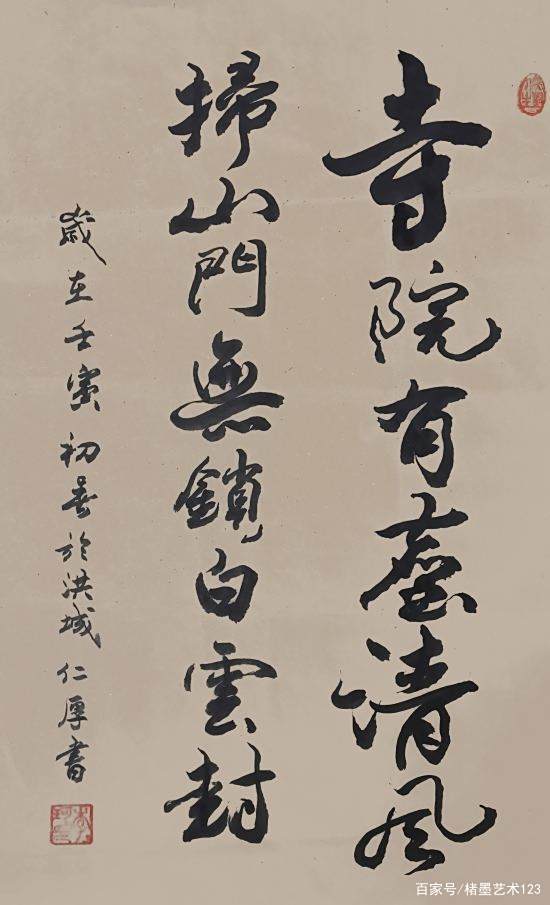 寺院有塵清風
掃山門無鎖白雲封
歲在壬寅初春於洪城仁厚書
百家号/楮墨艺术123